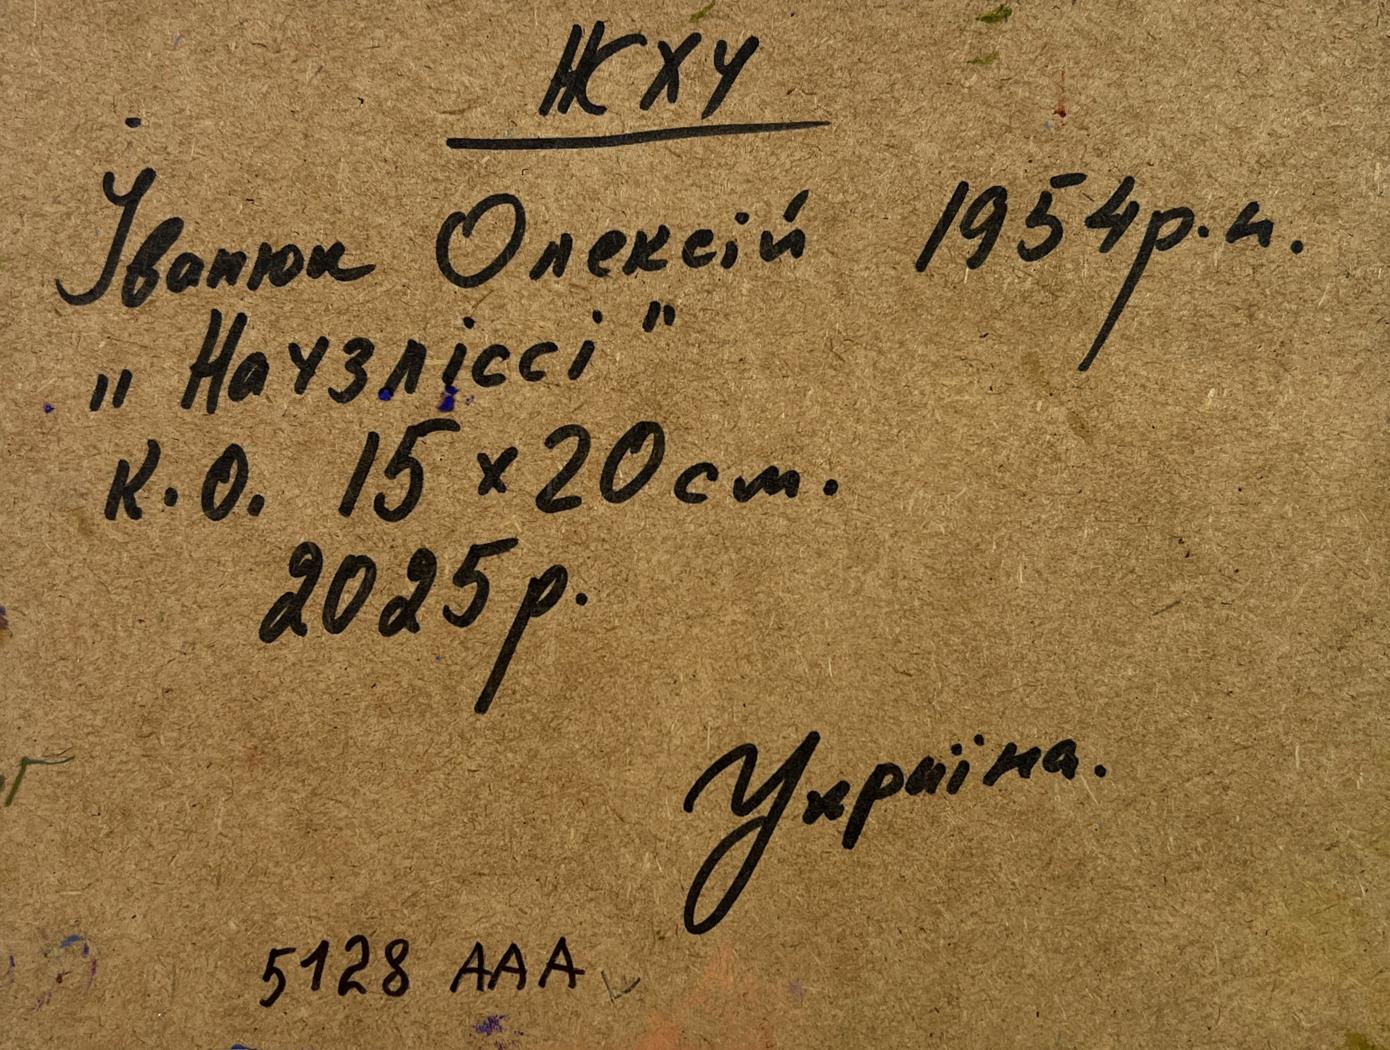 НСХУ
Іванюк Олексій 1954р.н.
"На узліссі"
к.о. 15×20см.
2025р.
Україна.
5128 AAA